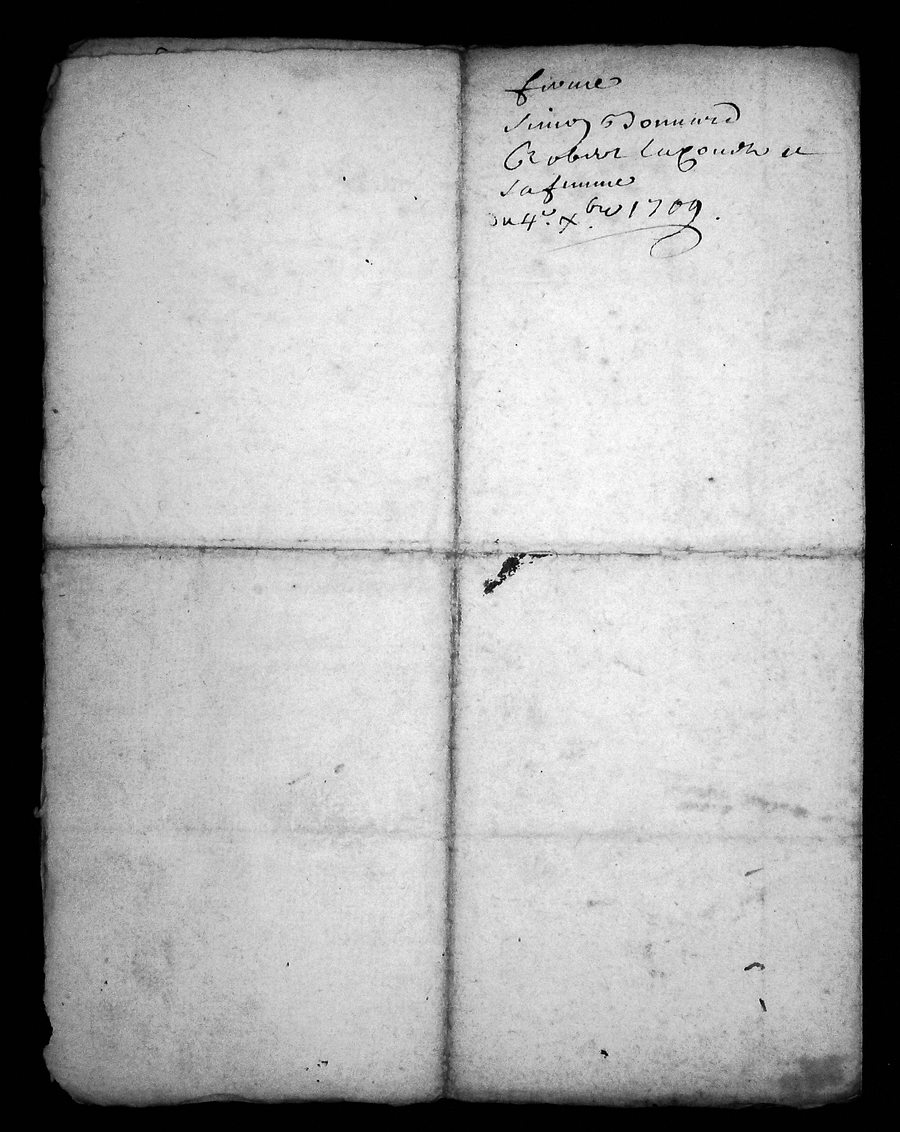 ferme
Simon Bonnard
Robert et
sa femme
Du 4e. xbre 1709.